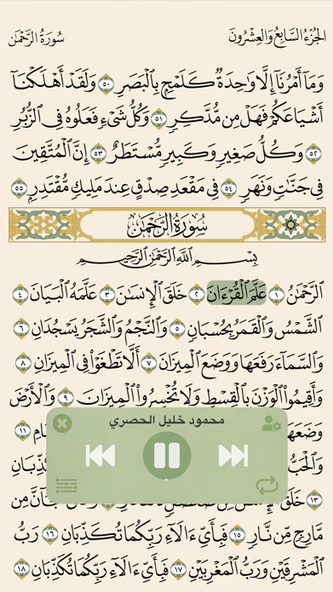 الجزء السابع والعشرون
سورة الرحمن
وَمَآ أَمْرُنَآ إِلَّا وَٰحِدَةٌ كَلَمْحٍۭ بِٱلْبَصَرِ ٥٠ وَلَقَدْ أَهْلَكْنَآ
أَشْيَاعَكُمْ فَهَلْ مِن مُّدَّكِرٍ ٥١ وَكُلُّ شَىْءٍ فَعَلُوهُ فِى ٱلزُّبُرِ
٥٢ وَكُلُّ صَغِيرٍ وَكَبِيرٍ مُّسْتَطَرٌ ٥٣ إِنَّ ٱلْمُتَّقِينَ
فِى جَنَّٰتٍ وَنَهَرٍ ٥٤ فِى مَقْعَدِ صِدْقٍ عِندَ مَلِيكٍ مُّقْتَدِرٍۭ ٥٥
سورة الرحمن
بِسْمِ ٱللَّهِ ٱلرَّحْمَٰنِ ٱلرَّحِيمِ
ٱلرَّحْمَٰنُ ١ عَلَّمَ ٱلْقُرْءَانَ ٢ خَلَقَ ٱلْإِنسَٰنَ ٣ عَلَّمَهُ ٱلْبَيَانَ ٤
ٱلشَّمْسُ وَٱلْقَمَرُ بِحُسْبَانٍ ٥ وَٱلنَّجْمُ وَٱلشَّجَرُ يَسْجُدَانِ ٦
وَٱلسَّمَآءَ رَفَعَهَا وَوَضَعَ ٱلْمِيزَانَ ٧ أَلَّا تَطْغَوْا۟ فِى ٱلْمِيزَانِ ٨
وَأَقِيمُوا۟ ٱلْوَزْنَ بِٱلْقِسْطِ وَلَا تُخْسِرُوا۟ ٱلْمِيزَانَ ٩ وَٱلْأَرْضَ
وَضَعَهَا
محمود خليل الحصري
١١ وَٱلْحَبُّ
١٣ خَلَقَ
مَّارِجٍ مِّن نَّارٍ ١٥ فَبِأَىِّ ءَالَآءِ رَبِّكُمَا تُكَذِّبَانِ ١٦ رَبُّ
ٱلْمَشْرِقَيْنِ وَرَبُّ ٱلْمَغْرِبَيْنِ ١٧ فَبِأَىِّ ءَالَآءِ رَبِّكُمَا تُكَذِّبَانِ ١٨